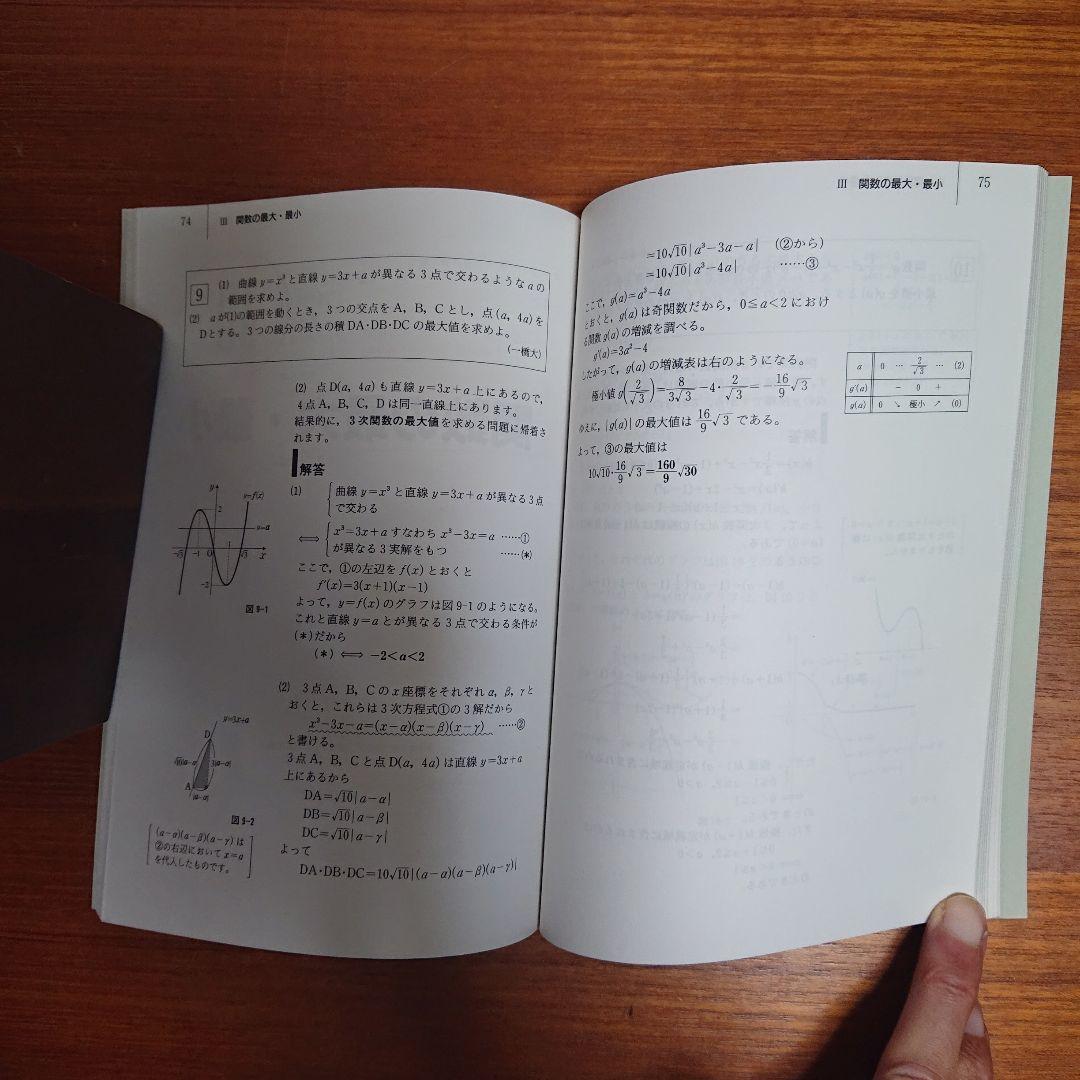 74 III 関数の最大・最小
9 (1) 曲線 y=x³ と直線 y=3x+a が異なる3点で交わるような a の
範囲を求めよ。
(2) a が(1)の範囲を動くとき，3つの交点を A，B，C とし，点(a, 4a)を
D とする。3つの線分の長さの積 DA・DB・DC の最大値を求めよ。
(一橋大)
(2) 点 D(a, 4a) も直線 y=3x+a 上にあるので，
4点 A，B，C，D は同一直線上にあります。
結果的に，3次関数の最大値を求める問題に帰着さ
れます。
解答
(1) 曲線 y=x³ と直線 y=3x+a が異なる3点
で交わる
⟺ x³=3x+a すなわち x³−3x=a ……①
が異なる3実解をもつ ……(*)
ここで，①の左辺を f(x) とおくと
f′(x)=3(x+1)(x−1)
よって，y=f(x) のグラフは図 9-1 のようになる。
これと直線 y=a とが異なる3点で交わる条件が
(*)だから
(*) ⟺ −2<a<2
y
y=f(x)
2
y=a
−√3 −1 0 1 √3 x
−2
図 9-1
(2) 3点 A，B，C の x 座標をそれぞれ α，β，γ と
おくと，これらは3次方程式①の3解だから
x³−3x−a=(x−α)(x−β)(x−γ) ……②
と書ける。
3点 A，B，C と点 D(a, 4a) は直線 y=3x+a
上にあるから
DA=√10|a−α|
DB=√10|a−β|
DC=√10|a−γ|
よって
DA・DB・DC=10√10|(a−α)(a−β)(a−γ)|
y=3x+a
D
√10|a−α| 3|a−α|
A
|a−α|
図 9-2
(a−α)(a−β)(a−γ) は
②の右辺において x=a
を代入したものです。
III 関数の最大・最小 75
=10√10|a³−3a−a| (②から)
=10√10|a³−4a| ……③
ここで，g(a)=a³−4a
とおくと，g(a) は奇関数だから，0≤a<2 におけ
る関数 g(a) の増減を調べる。
g′(a)=3a²−4
したがって，g(a) の増減表は右のようになる。
極小値 g(2/√3)=8/3√3−4・2/√3=−16/9√3
ゆえに，|g(a)| の最大値は 16/9√3 である。
よって，③の最大値は
10√10・16/9√3=160/9√30
a 0 … 2/√3 … (2)
g′(a) − 0 +
g(a) 0 ↘ 極小 ↗ (0)